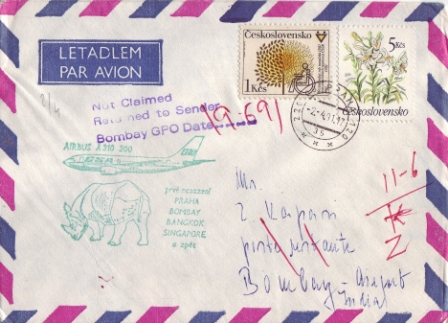 LETADLEM
PAR AVION
Československo
1 Kčs
5
Kčs
Československo
Not Claimed
Returned to Sender
Bombay GPO Date
AIRBUS A 310 300
první nasazení
PRAHA
BOMBAY
BANGKOK
SINGAPORE
a zpět
11-6
Mr.
poste restante
Bombay - Airport
India